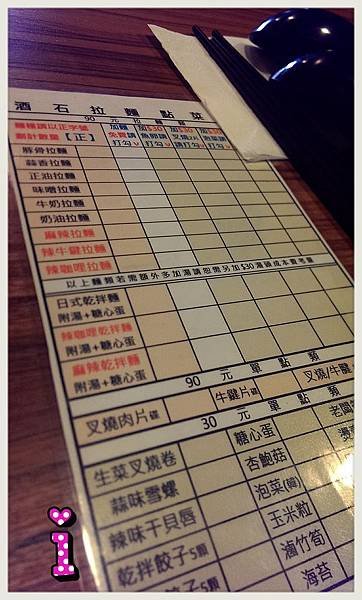 酒石拉麵點菜
90 元拉麵類
麵種請以正字號
劃計數量【正】
加麵 免費請 打勾v
加$30 魚卵請 打勾v
加$30 叉燒2片 請打勾v
加$30 泡菜請 打勾v
豚骨拉麵
蒜香拉麵
正油拉麵
味噌拉麵
牛奶拉麵
奶油拉麵
麻辣拉麵
辣牛鍵拉麵
辣咖哩拉麵
以上麵類若需額外多加湯請恕需另加$30湯頭成本費老闆
日式乾拌麵
附湯+糖心蛋
辣咖哩乾拌麵
附湯+糖心蛋
麻辣乾拌麵
附湯+糖心蛋
90 元單點類
叉燒肉片碟
牛鍵片碟
叉燒/牛鍵
30 元單點類
糖心蛋
老闆
生菜叉燒卷
杏鮑菇
燙
蒜味雪螺
泡菜(韓)
辣味干貝唇
玉米粒
乾拌餃子5顆
滷竹筍
餃子5顆
海苔
i